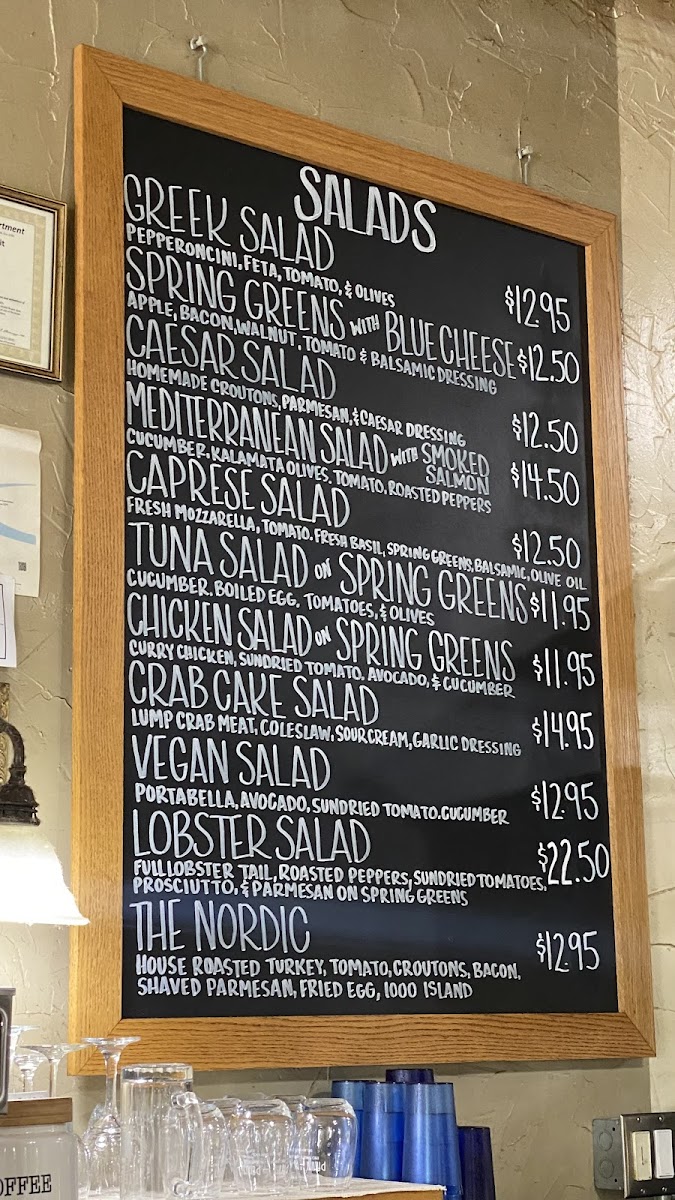 SALADS
GREEK SALAD
PEPPERONCINI. FETA, TOMATO, & OLIVES $12.95
SPRING GREENS WITH BLUE CHEESE $12.50
APPLE, BACON, WALNUT, TOMATO & BALSAMIC DRESSING
CAESAR SALAD
HOMEMADE CROUTONS, PARMESAN, & CAESAR DRESSING $12.50
MEDITERRANEAN SALAD WITH SMOKED SALMON $14.50
CUCUMBER. KALAMATA OLIVES. TOMATO. ROASTED PEPPERS
CAPRESE SALAD $12.50
FRESH MOZZARELLA, TOMATO. FRESH BASIL, SPRING GREENS, BALSAMIC, OLIVE OIL
TUNA SALAD ON SPRING GREENS $11.95
CUCUMBER. BOILED EGG. TOMATOES, & OLIVES
CHICKEN SALAD ON SPRING GREENS $11.95
CURRY CHICKEN, SUNDRIED TOMATO. AVOCADO, & CUCUMBER
CRAB CAKE SALAD $14.95
LUMP CRAB MEAT, COLESLAW, SOUR CREAM, GARLIC DRESSING
VEGAN SALAD $12.95
PORTABELLA, AVOCADO, SUNDRIED TOMATO. CUCUMBER
LOBSTER SALAD $22.50
FULL LOBSTER TAIL, ROASTED PEPPERS, SUNDRIED TOMATOES,
PROSCIUTTO, & PARMESAN ON SPRING GREENS
THE NORDIC $12.95
HOUSE ROASTED TURKEY, TOMATO, CROUTONS, BACON,
SHAVED PARMESAN, FRIED EGG, 1000 ISLAND